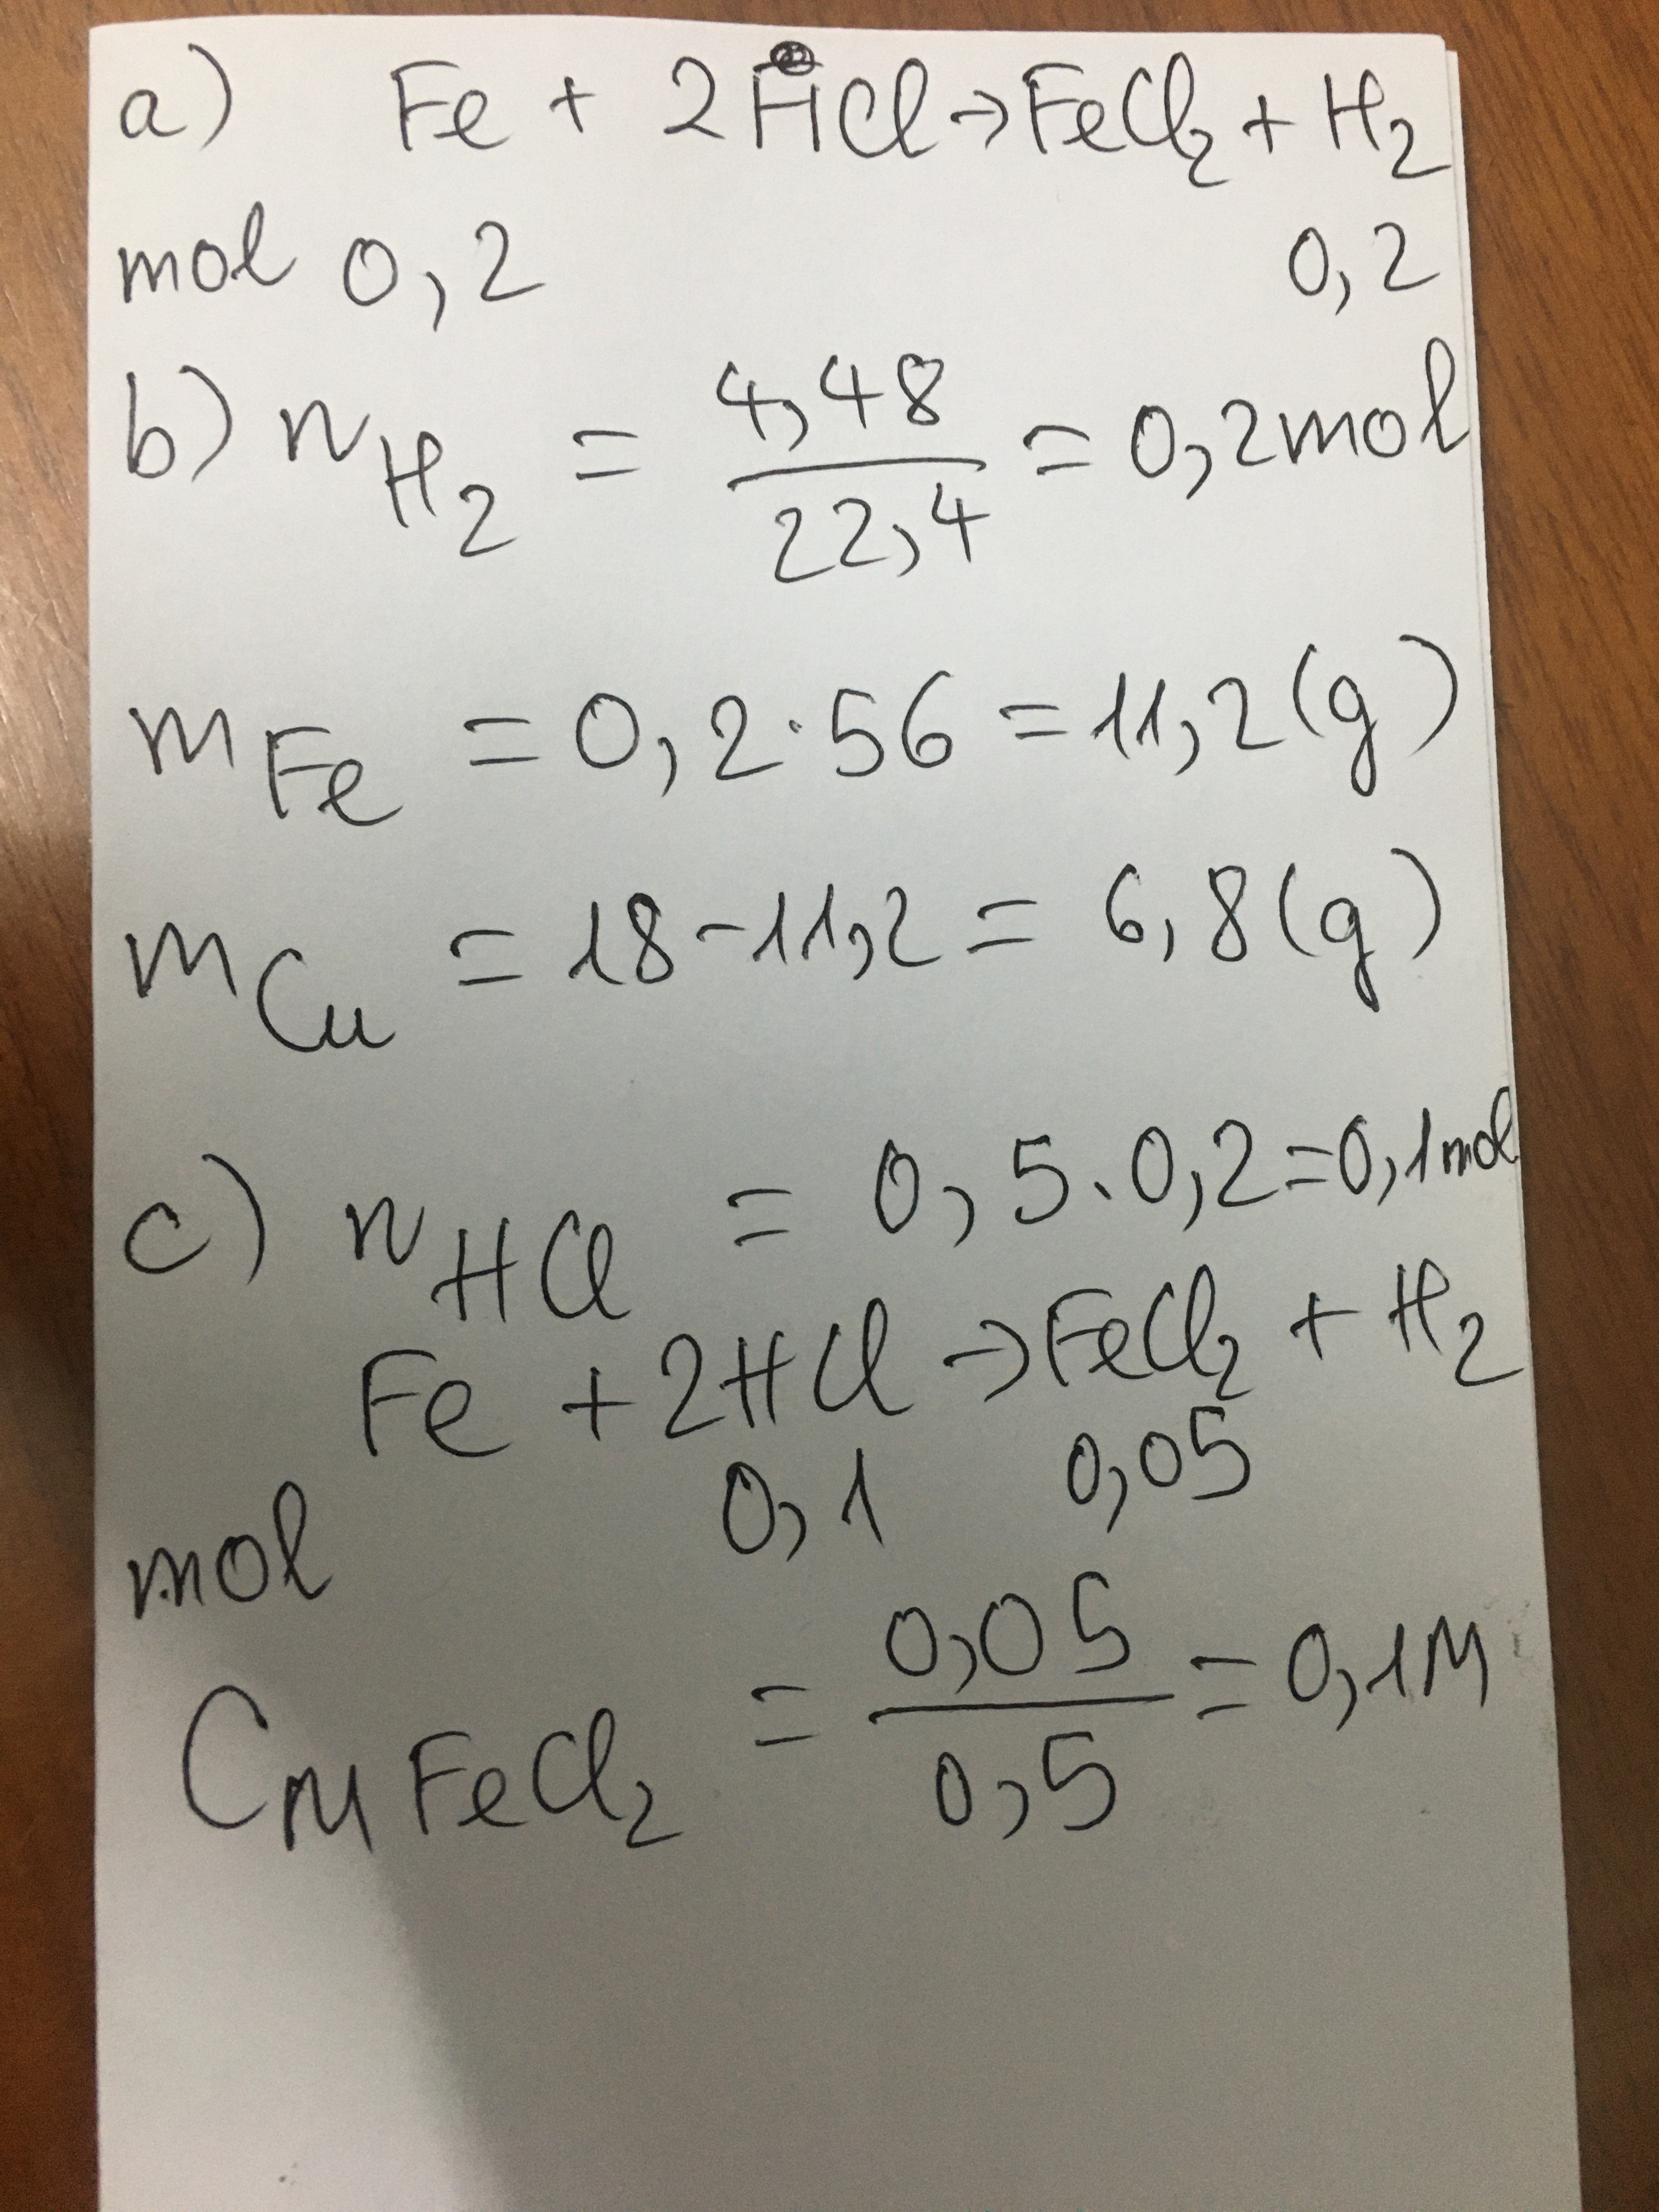 a) Fe + 2HCl → FeCl₂ + H₂
mol 0,2 0,2
b) n H₂ = 4,48 / 22,4 = 0,2mol
m Fe = 0,2·56 = 11,2(g)
m Cu = 18-11,2 = 6,8(g)
c) n HCl = 0,5.0,2=0,1mol
Fe + 2HCl → FeCl₂ + H₂
mol 0,1 0,05
C M FeCl₂ = 0,05 / 0,5 = 0,1M